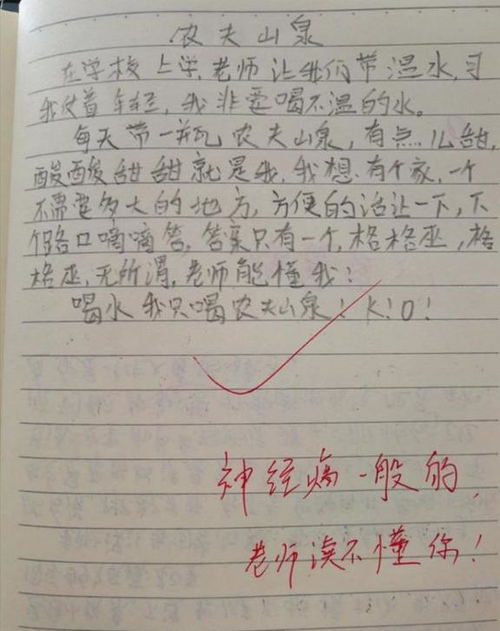 农夫山泉
在学校上学,老师让我们带温水,可
我仗着年轻,我非要喝不温的水。
每天带一瓶农夫山泉,有点儿甜,
酸酸甜甜就是我,我想有个家,一个
不需要多大的地方,方便的话让一下,下
个路口嘀嘀答,答案只有一个,格格巫,格
格巫,无所谓,老师能懂我!
喝水我只喝农夫山泉!K!O!
神经病一般的,
老师读不懂你!